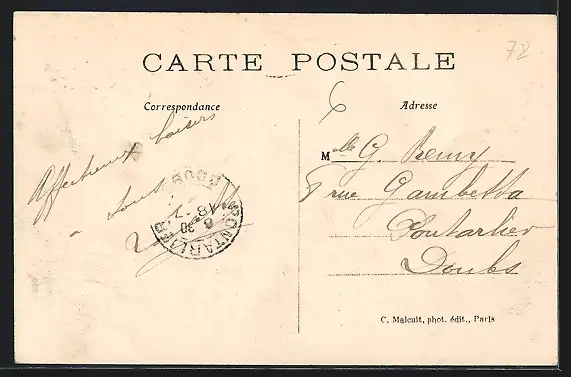 78
CARTE POSTALE
Correspondance
Adresse
6
Affectueux baisers
à tous
Mlle G. Remy
7 rue Gambetta
Pontarlier
Doubs
PONTARLIER
DOUBS
18 - 7
6 30
C. Malcuit, phot. édit., Paris